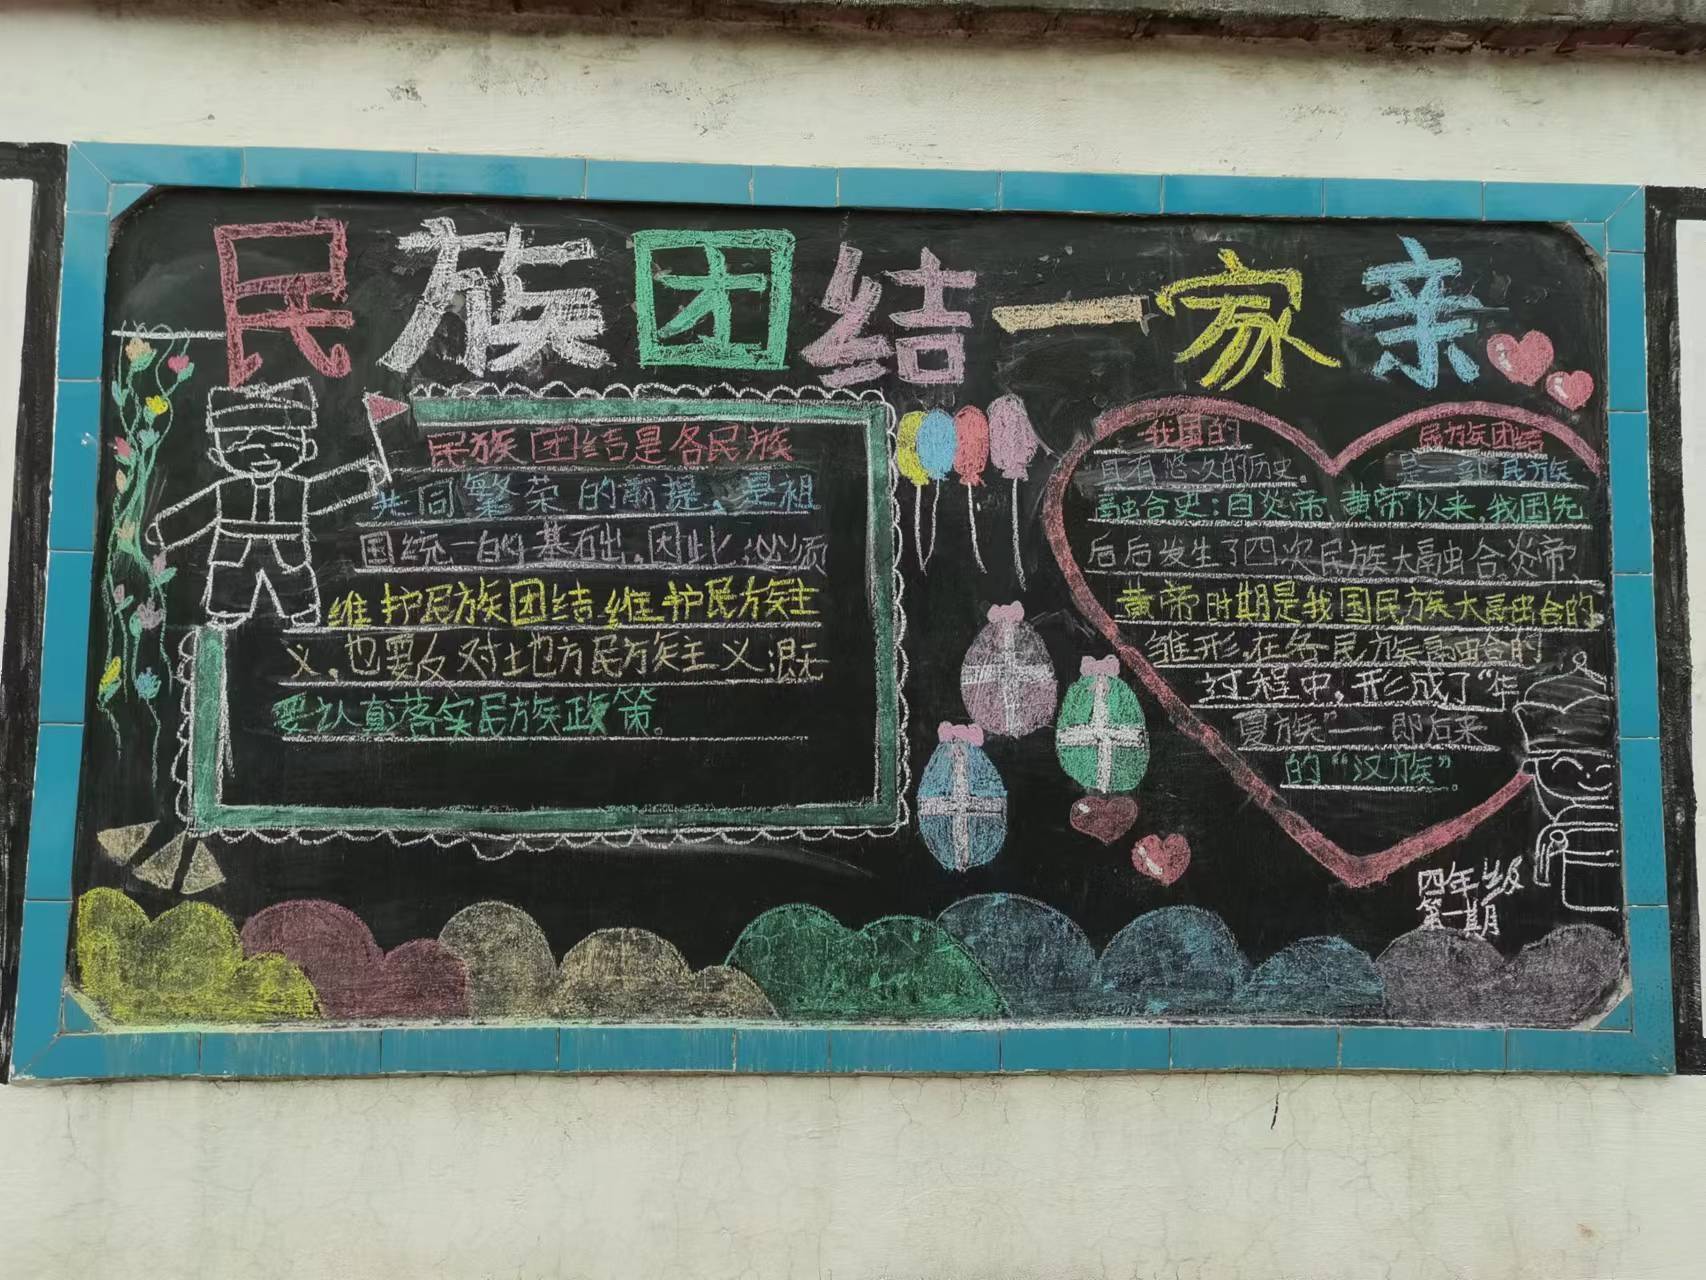 民族团结一家亲
民族团结是各民族
共同繁荣的前提、是祖
国统一的基础,因此必须
维护民族团结,维护民族主
义,也要反对地方民族主义,既无
要认真落实民族政策。
我国的 民族团结
具有悠久的历史. 是一部民族
融合史:自炎帝、黄帝以来,我国先
后后发生了四次民族大融合炎帝
黄帝时期是我国民族大融合的
雏形,在各民族融合的
过程中,形成了“华
夏族”——即后来
的“汉族”.
四年级
第一期